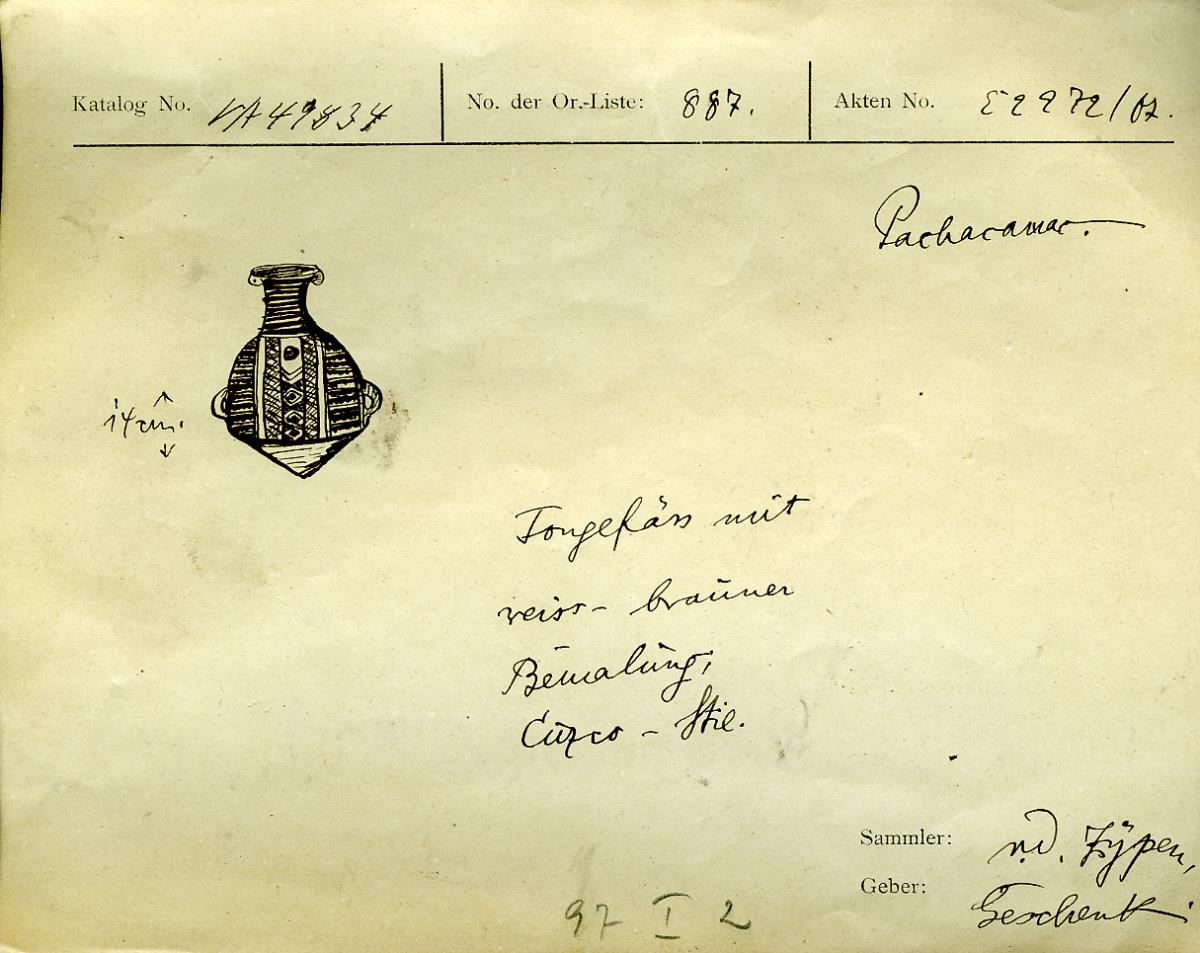 Katalog No. VA 49834 No. der Or.-Liste: 887. Akten No. E 2272/07.
Pachacamac.
14 cm.
Tongefäss mit
weiss- brauner
Bemalung;
Cuzco - Stil.
Sammler: v. d. Zÿpen,
Geber: Geschenk.
97 I 2